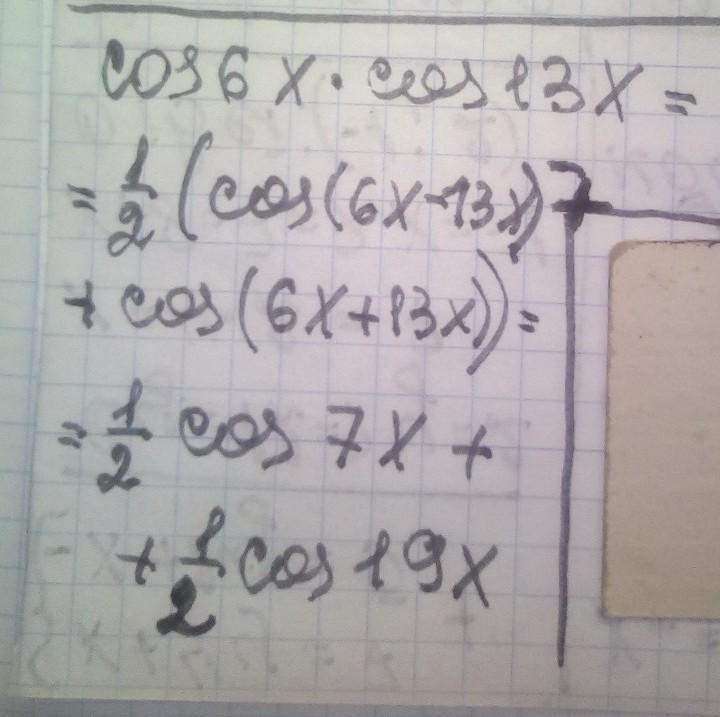 cos6x·cos13x=
=1/2(cos(6x-13x)+
+cos(6x+13x))=
=1/2 cos 7x+
+1/2 cos 19x